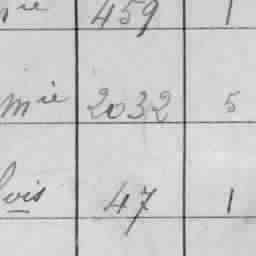 459 1
mie 2032 5
ois 47 1